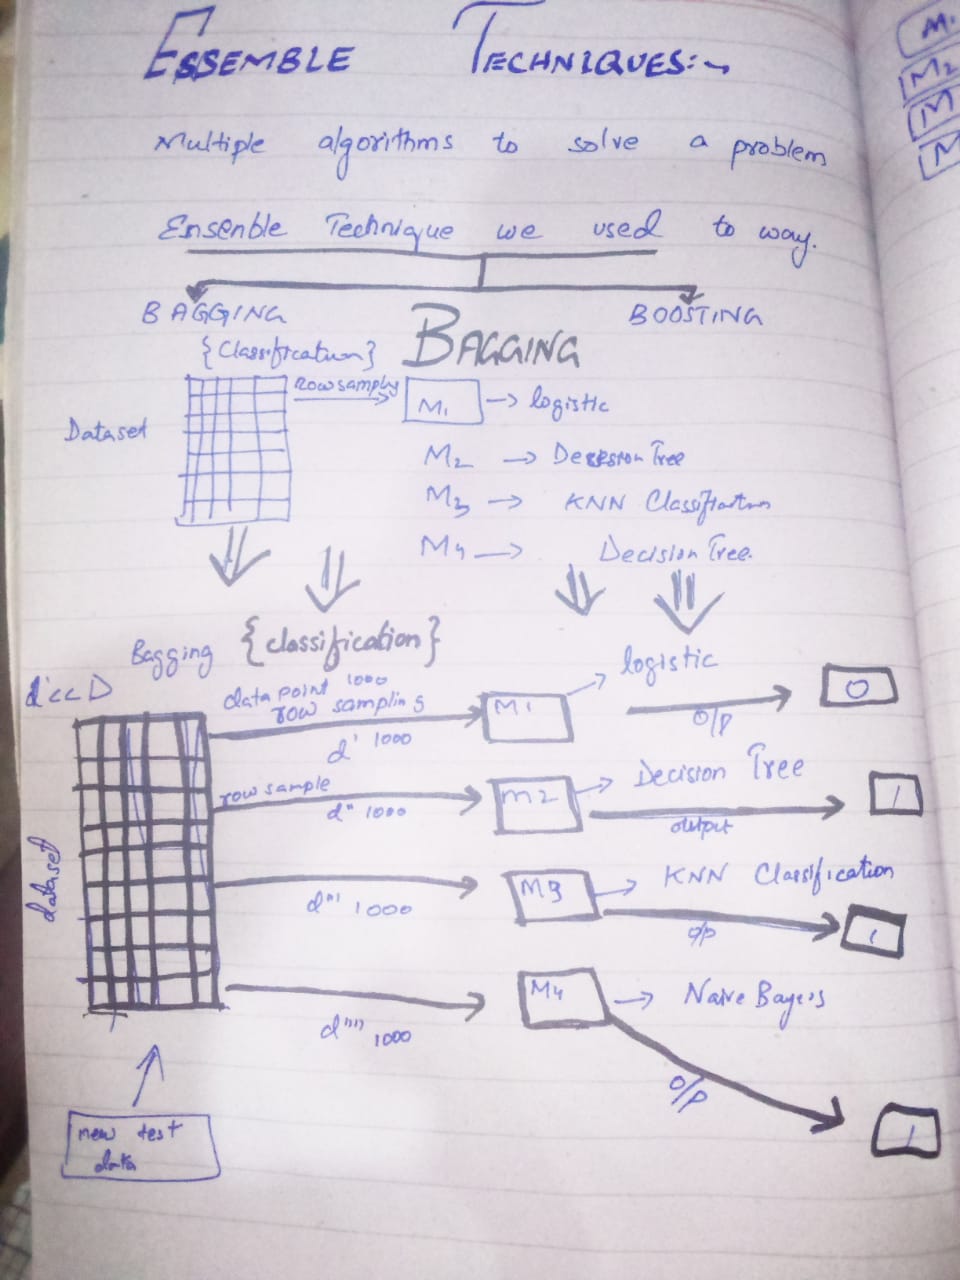 ESSEMBLE TECHNIQUES:~
Multiple algorithms to solve a problem
Ensenble Technique we used to way.
BAGGING
BOOSTING
{Classification}
BAGGING
Dataset
row sampling
M1 → logistic
M2 → Decision Tree
M3 → KNN Classification
M4 → Decision Tree
Bagging {classification}
d'<< D
dataset
data point 1000
row sampling
d' 1000
M1
logistic
o/p
0
row sample
d'' 1000
M2
Decision Tree
output
1
d''' 1000
M3
KNN Classification
o/p
1
d'''' 1000
M4
Naive Bayers
o/p
1
new test
data
M1
M2
M
M